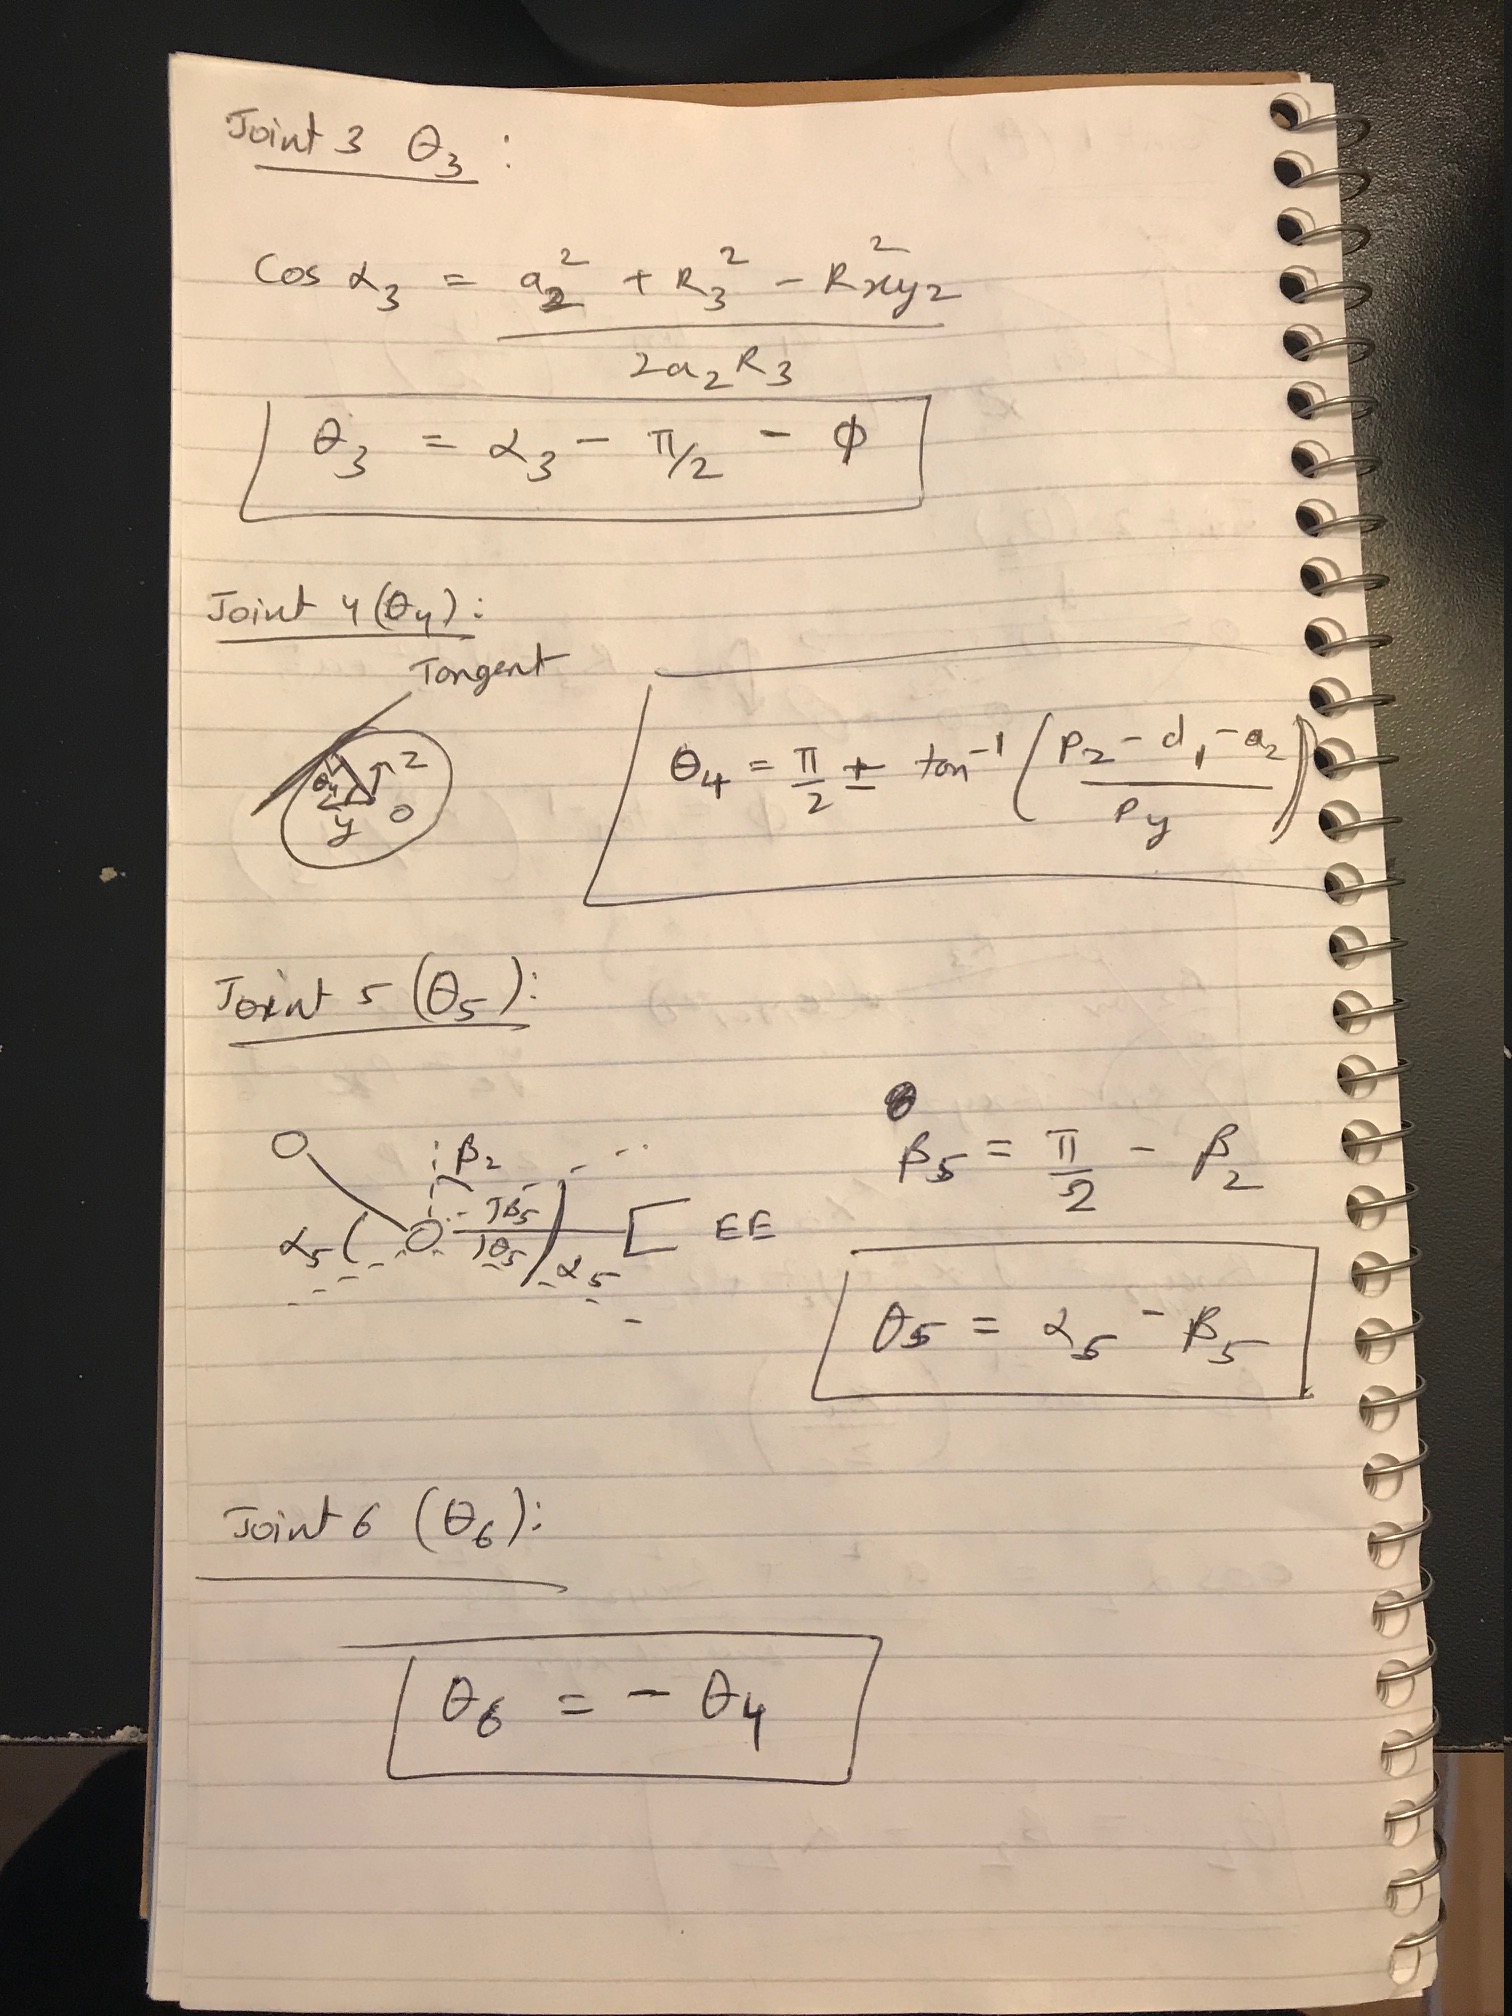 Joint 3 θ3 :
Cos α3 = a2² + R3² - Rxyz²
2a2R3
θ3 = α3 - π/2 - φ
Joint 4 (θ4) :
Tangent
θ4 z
y O
θ4 = π/2 ± tan⁻¹ ( Pz - d1 - a2 / Py )
Joint 5 (θ5) :
β5 = π/2 - β2
β2
β5
α5 θ5 α5 EE
θ5 = α5 - β5
Joint 6 (θ6) :
θ6 = - θ4